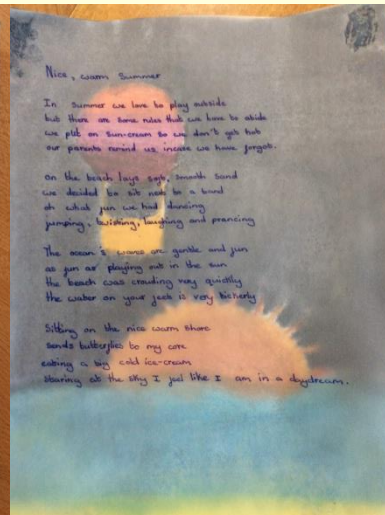 Nice, warm Summer
In summer we love to play outside
but there are some rules that we have to abide
we put on sun-cream so we don't get hot
our parents remind us incase we have forgot.
On the beach lays soft, smooth sand
we decided to sit next to a band
oh what fun we had dancing
jumping, twisting, laughing and prancing
The ocean's waves are gentle and fun
as fun as playing out in the sun
the beach was crowding very quickly
the water on your feet is very tickerly
Sitting on the nice warm shore
sends butterflies to my core
eating a big cold ice-cream
staring at the sky I feel like I am in a daydream.